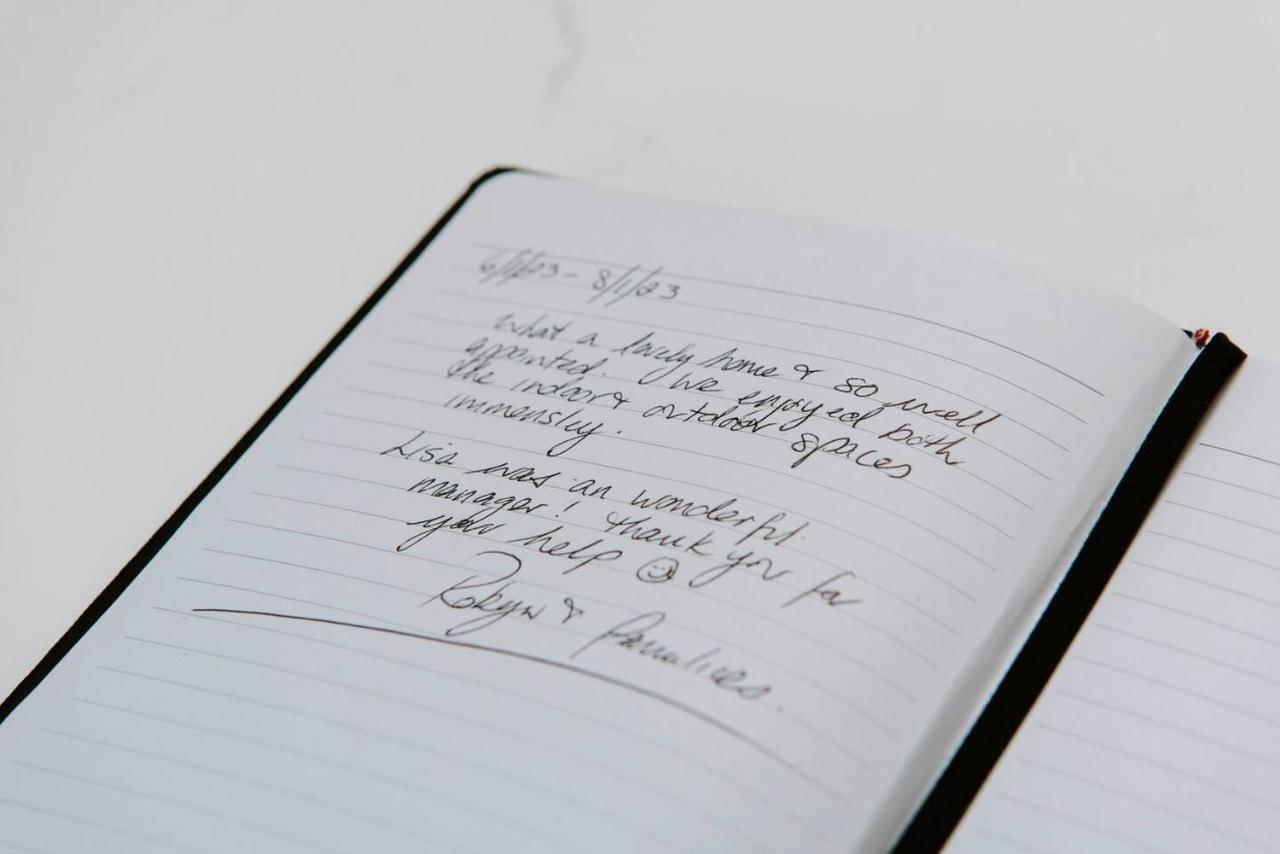 6/1/23 - 8/1/23
What a lovely home & so well
appointed. We enjoyed both
the indoor & outdoor spaces
immensley.
Lisa was an wonderful
manager! Thank you for
your help ☺
Robyn & families.